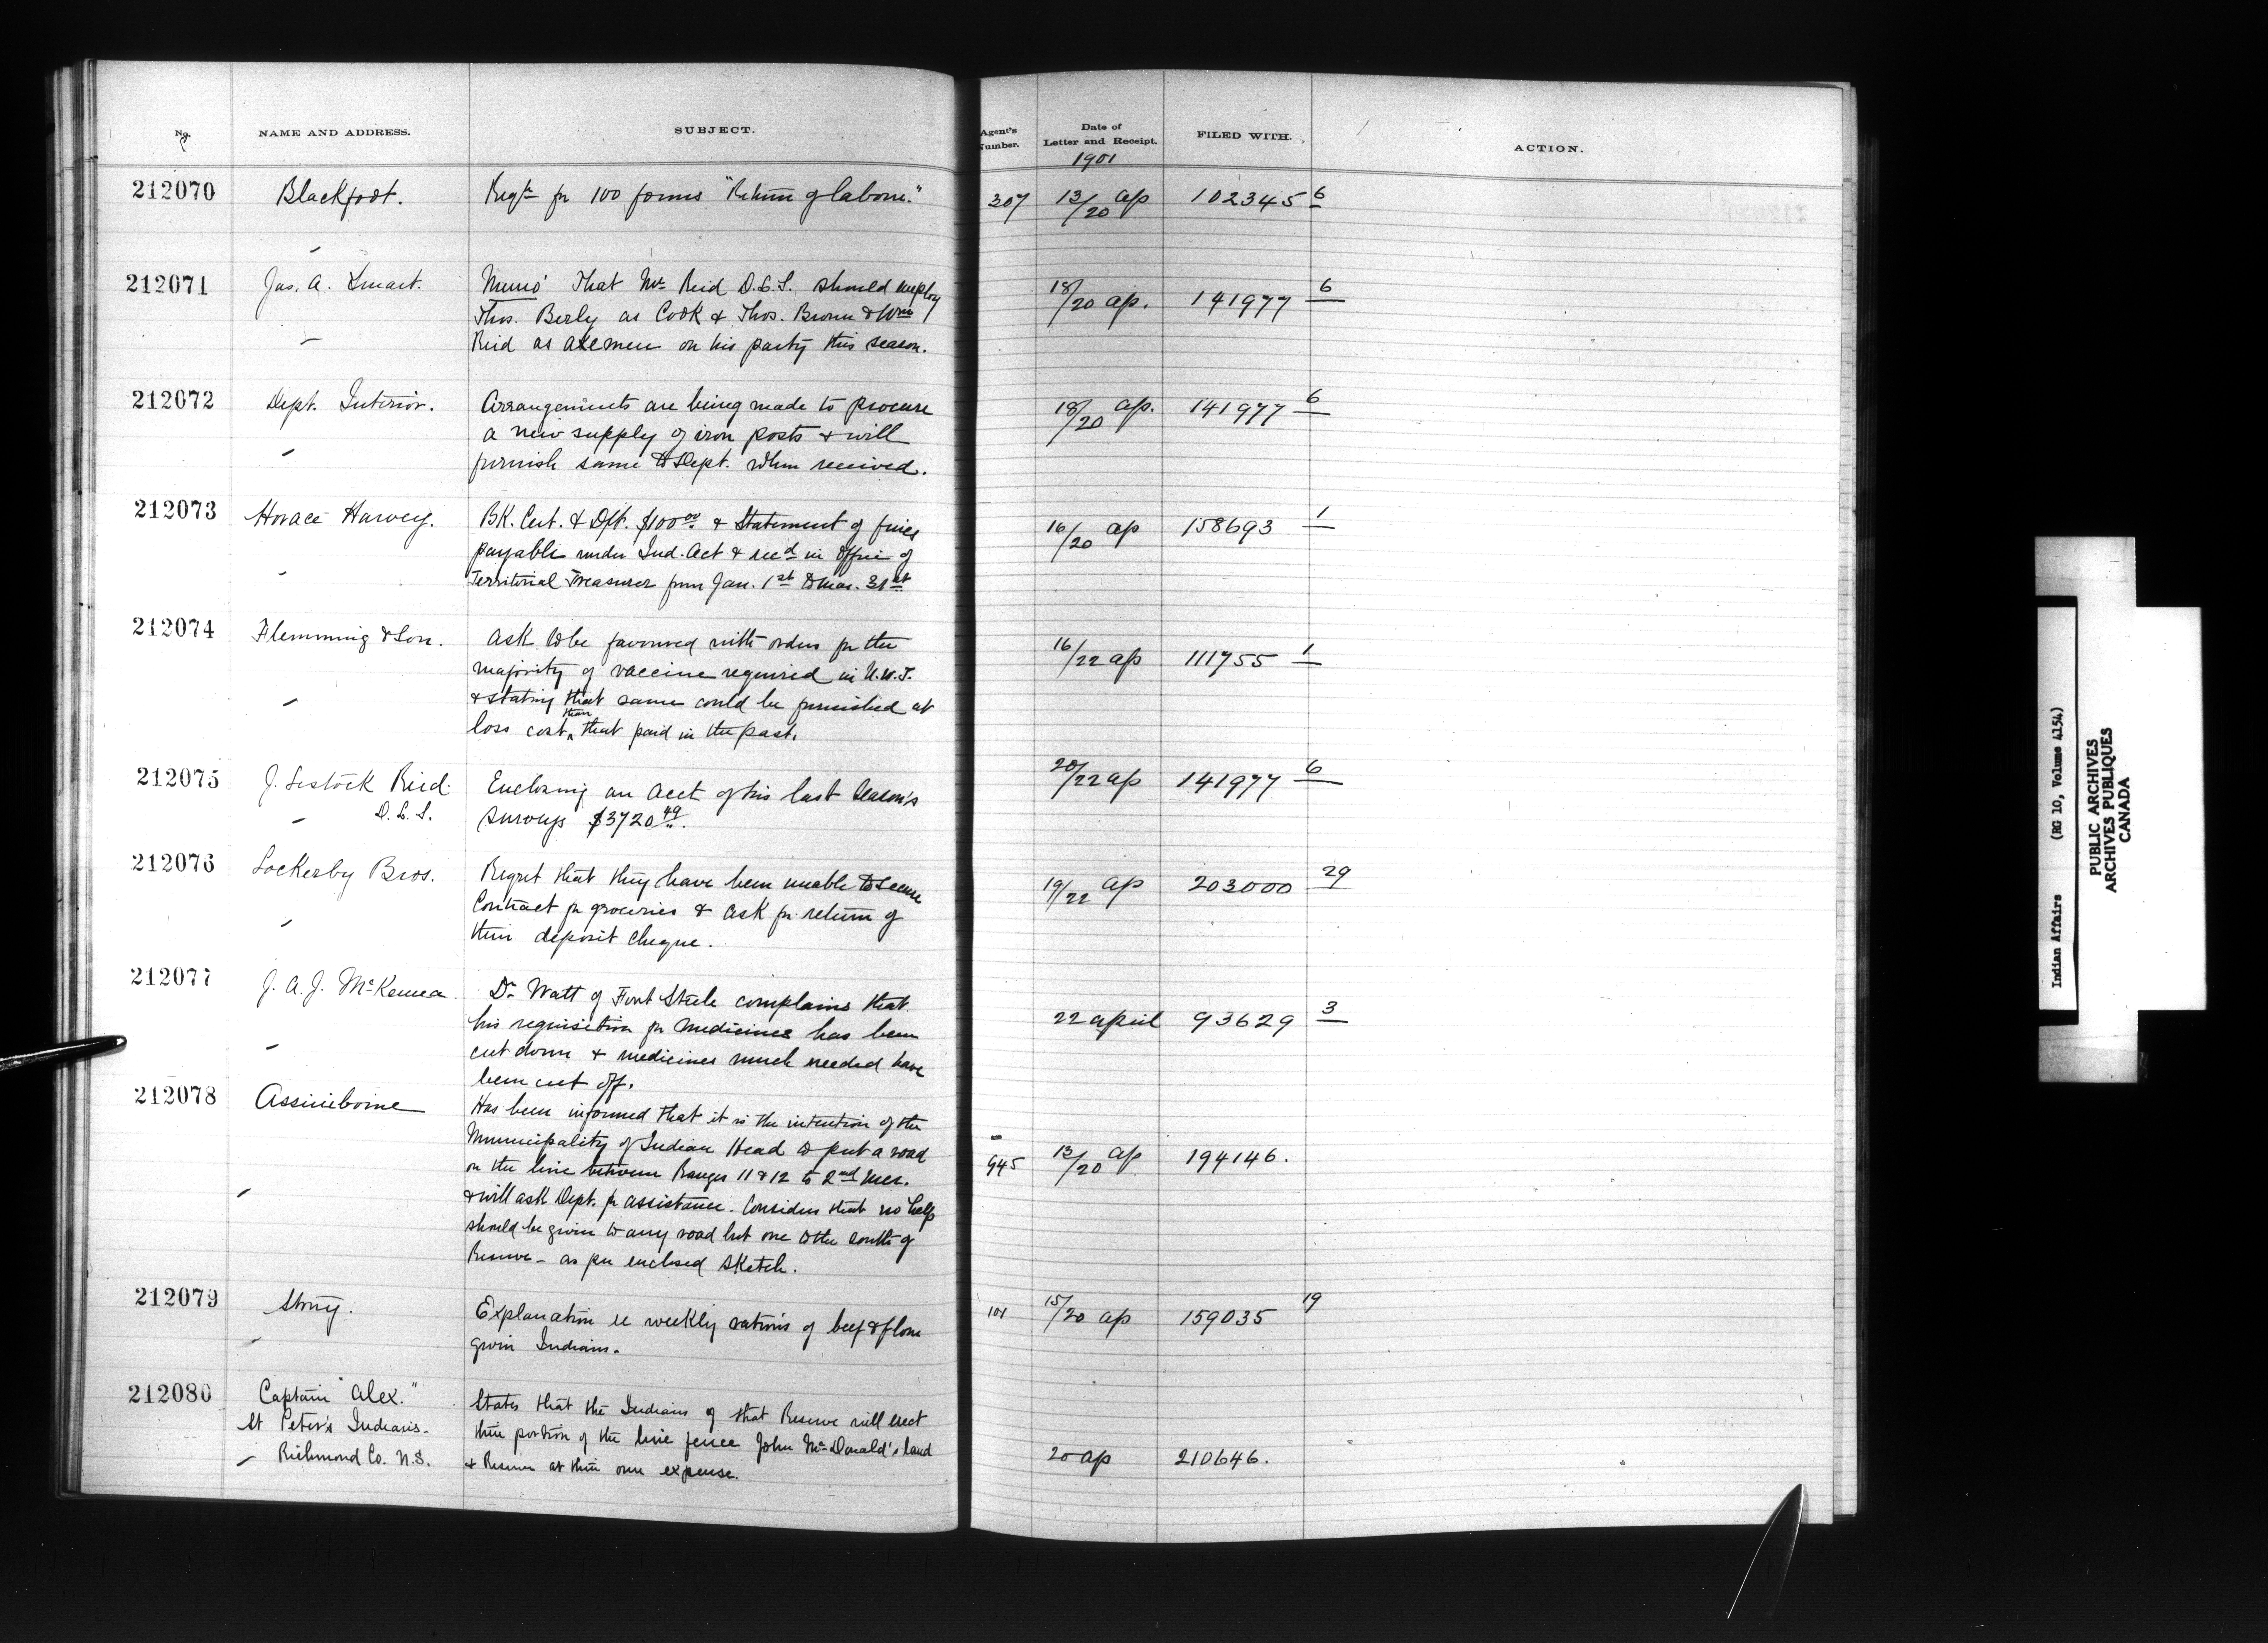 No.
NAME AND ADDRESS.
SUBJECT.
Agent's
Number.
Date of
Letter and Receipt.
1901
FILED WITH.
ACTION.
212070
Blackfoot.
Reqn for 100 forms "Return of labour."
307
13/20 ap
102345 6
212071
Jas. A. Smart.
Memo' That Mr Reid D.L.S. should employ
Thos. Berly as Cook & Thos. Brown & Wm
Reid as axemen on his party this season.
18/20 ap.
141977 6
212072
Dept. Interior.
Arrangements are being made to procure
a new supply of iron posts & will
furnish same to Dept. when received.
18/20 ap.
141977 6
212073
Horace Harvey.
BK. Cert. & Dft. $100 00 & Statement of fines
payable under Ind. Act & recd in Office of
Territorial Treasurer from Jan. 1st to Mar. 31st
16/20 ap
158693 1
212074
Flemming & Son.
Ask to be favoured with orders for the
majority of vaccine required in N.W.T.
& stating that same could be furnished at
loss cost than that paid in the past.
16/22 ap
111755 1
212075
J. Lestock Reid
D.L.S.
Enclosing an acct of his last season's
surveys $3720 49.
20/22 ap
141977 6
212076
Lockerby Bros.
Regret that they have been unable to secure
Contract for groceries & ask for return of
their deposit cheque.
19/22 ap
203000 29
212077
J. A. J. McKenna
Dr Watt of Fort Steele complains that
his requisition for medicines has been
cut down & medicines much needed have
been cut off.
22 april
93629 3
212078
Assiniboine
Has been informed that it is the intention of the
Municipality of Indian Head to put a road
on the line between Ranges 11 & 12 to 2nd Mer.
& will ask Dept. for assistance. Considers that no help
should be given to any road but one to the south of
Reserve - as per enclosed sketch.
945
13/20 ap
194146.
212079
Stony.
Explanation re weekly rations of beef & flour
given Indians.
101
15/20 ap
159035 19
212080
Captain "Alex."
St Peter's Indians.
Richmond Co. N.S.
States that the Indians of that Reserve will erect
their portion of the line fence John McDonald's land
& Reserve at their own expense.
20 ap
210646.
Indian Affairs (RG 10, Volume 4154)
PUBLIC ARCHIVES
ARCHIVES PUBLIQUES
CANADA